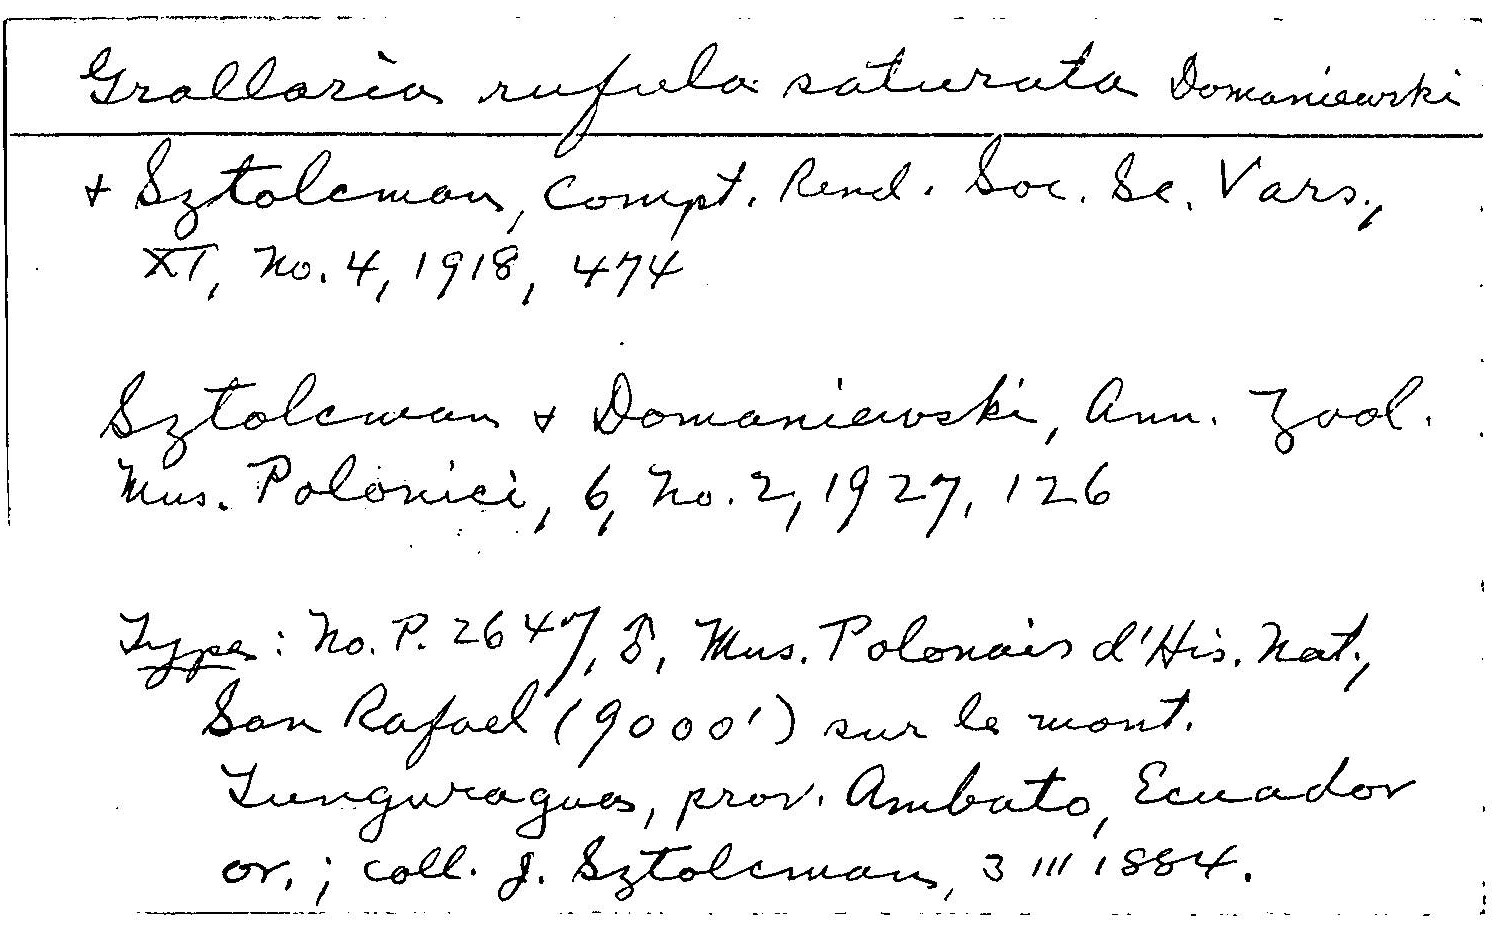 Grallaria rufula saturata Domaniewski
+ Sztolcman, Compt. Rend. Soc. Sc. Vars.,
XI, No. 4, 1918, 474
Sztolcman + Domaniewski, Ann. Zool.
Mus. Polonici, 6, No. 2, 1927, 126
Type: No. P. 2647, ♂, Mus. Polonais d'His. Nat.,
San Rafael (9000') sur le mont.
Tunguragua, prov. Ambato, Ecuador
or.; coll. J. Sztolcman, 3 III 1884.